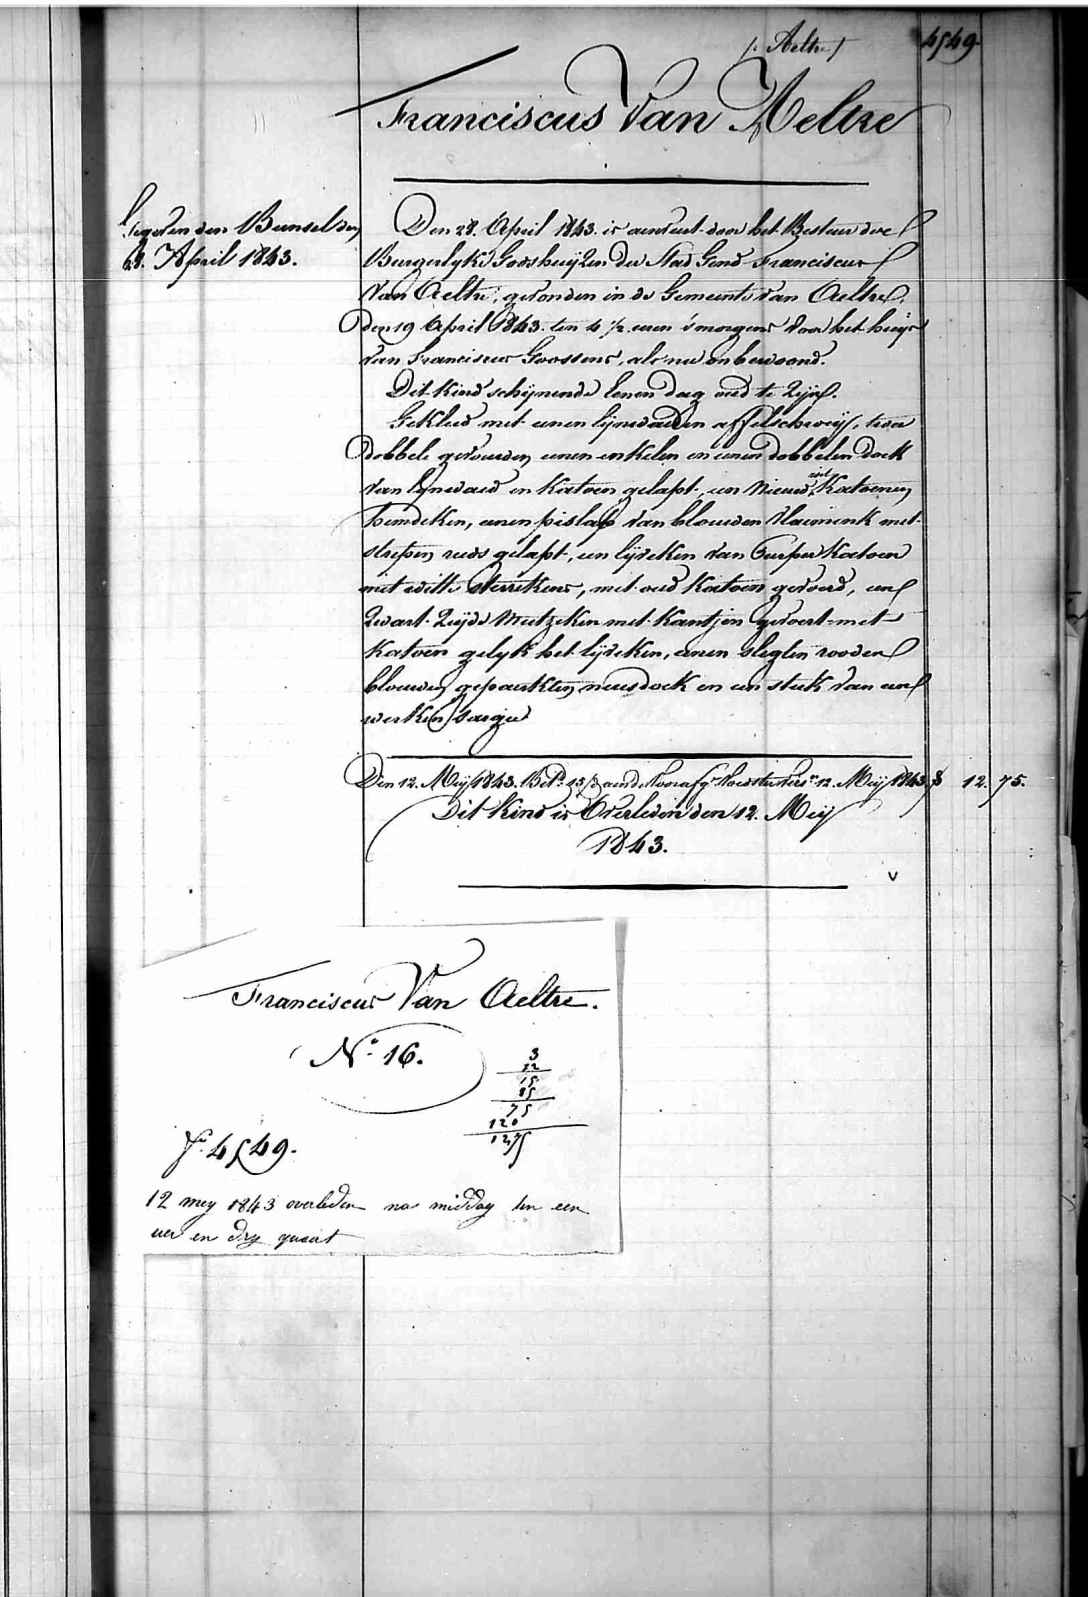 /: Aeltre /
4549
Franciscus Van Aeltre
Gegeven den Bunsel den
28. April 1843.
Den 28. April 1843. is aenveert door het Bestuer der
Burgerlyke Godshuijzen der Stad Gend Franciscus
Van Aeltre, gevonden in de Gemeente van Aeltre,
den 19 April 1843. ten 4 1/2 uren 's morgens voor het huys
van Franciscus Goossens, als nu onbewoond.
Dit kind schijnende eenen dag oud te zijn.
Gekleed met eenen lijnwaeden, twee
dobbele gevouden, eenen enkelen en eenen dobbelen doek
van lijnwaed en katoen gelapt, een nieuw wit katoenen
hemdeken, eenen pislap van blauwen Vlaminck met
strepen reeds gelapt, een lijveken van purper katoen
met witte sterrekens, met oud katoen gevoerd, een
zwart zeyde mutzeken met kantjen gevoert met
katoen gelyk het lijveken, eenen slegten rooden
blauwen geperkten neusdoek en een stuk van een
werken sargie
Den 12. Meij 1843. Bet. 15 aen de Voedsterse 12. Meij 1843. 12. 75.
Dit Kind is Overleden den 12. Meij
1843.
v
Franciscus Van Aeltre.
No. 16.
3
12
15
85
75
120
1275
fo. 4549.
12 mey 1843 overleden na middag ten een
uer en dry quaert